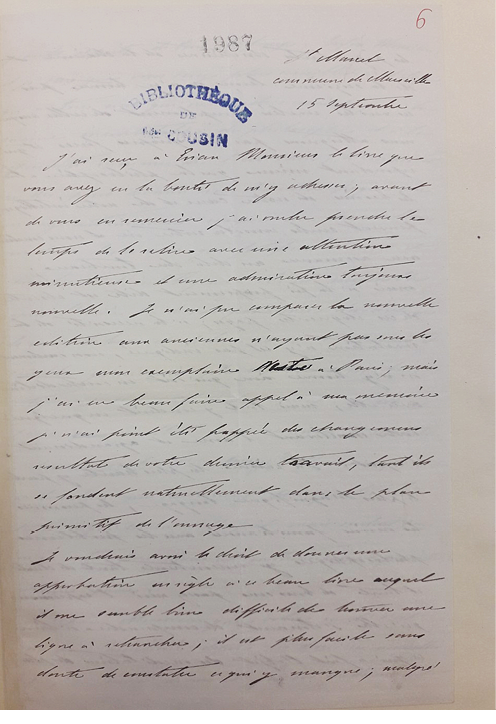 6
1987
St Marcel
commune de Marseille
15 Septembre
BIBLIOTHÈQUE
DE
COUSIN
J'ai reçu à Evian Monsieur le livre que
vous avez eu la bonté de m'y adresser; avant
de vous en remercier j'ai voulu prendre le
temps de le relire avec une attention
minutieuse et une admiration toujours
nouvelle. Je n'ai pu comparer la nouvelle
edition aux anciennes n'ayant pas sous les
yeux mon exemplaire à Paris; mais
j'ai eu beau faire appel à ma mémoire
je n'ai point été frappée des changemens
resultats de votre dernier travail, tant ils
se fondent naturellement dans le plan
primitif de l'ouvrage
Je voudrais avoir le droit de donner une
approbation en règle à ce beau livre auquel
il me semble bien difficile de trouver une
ligne à retrancher; il est plus facile sans
doute de constater ce qui y manque; malgré